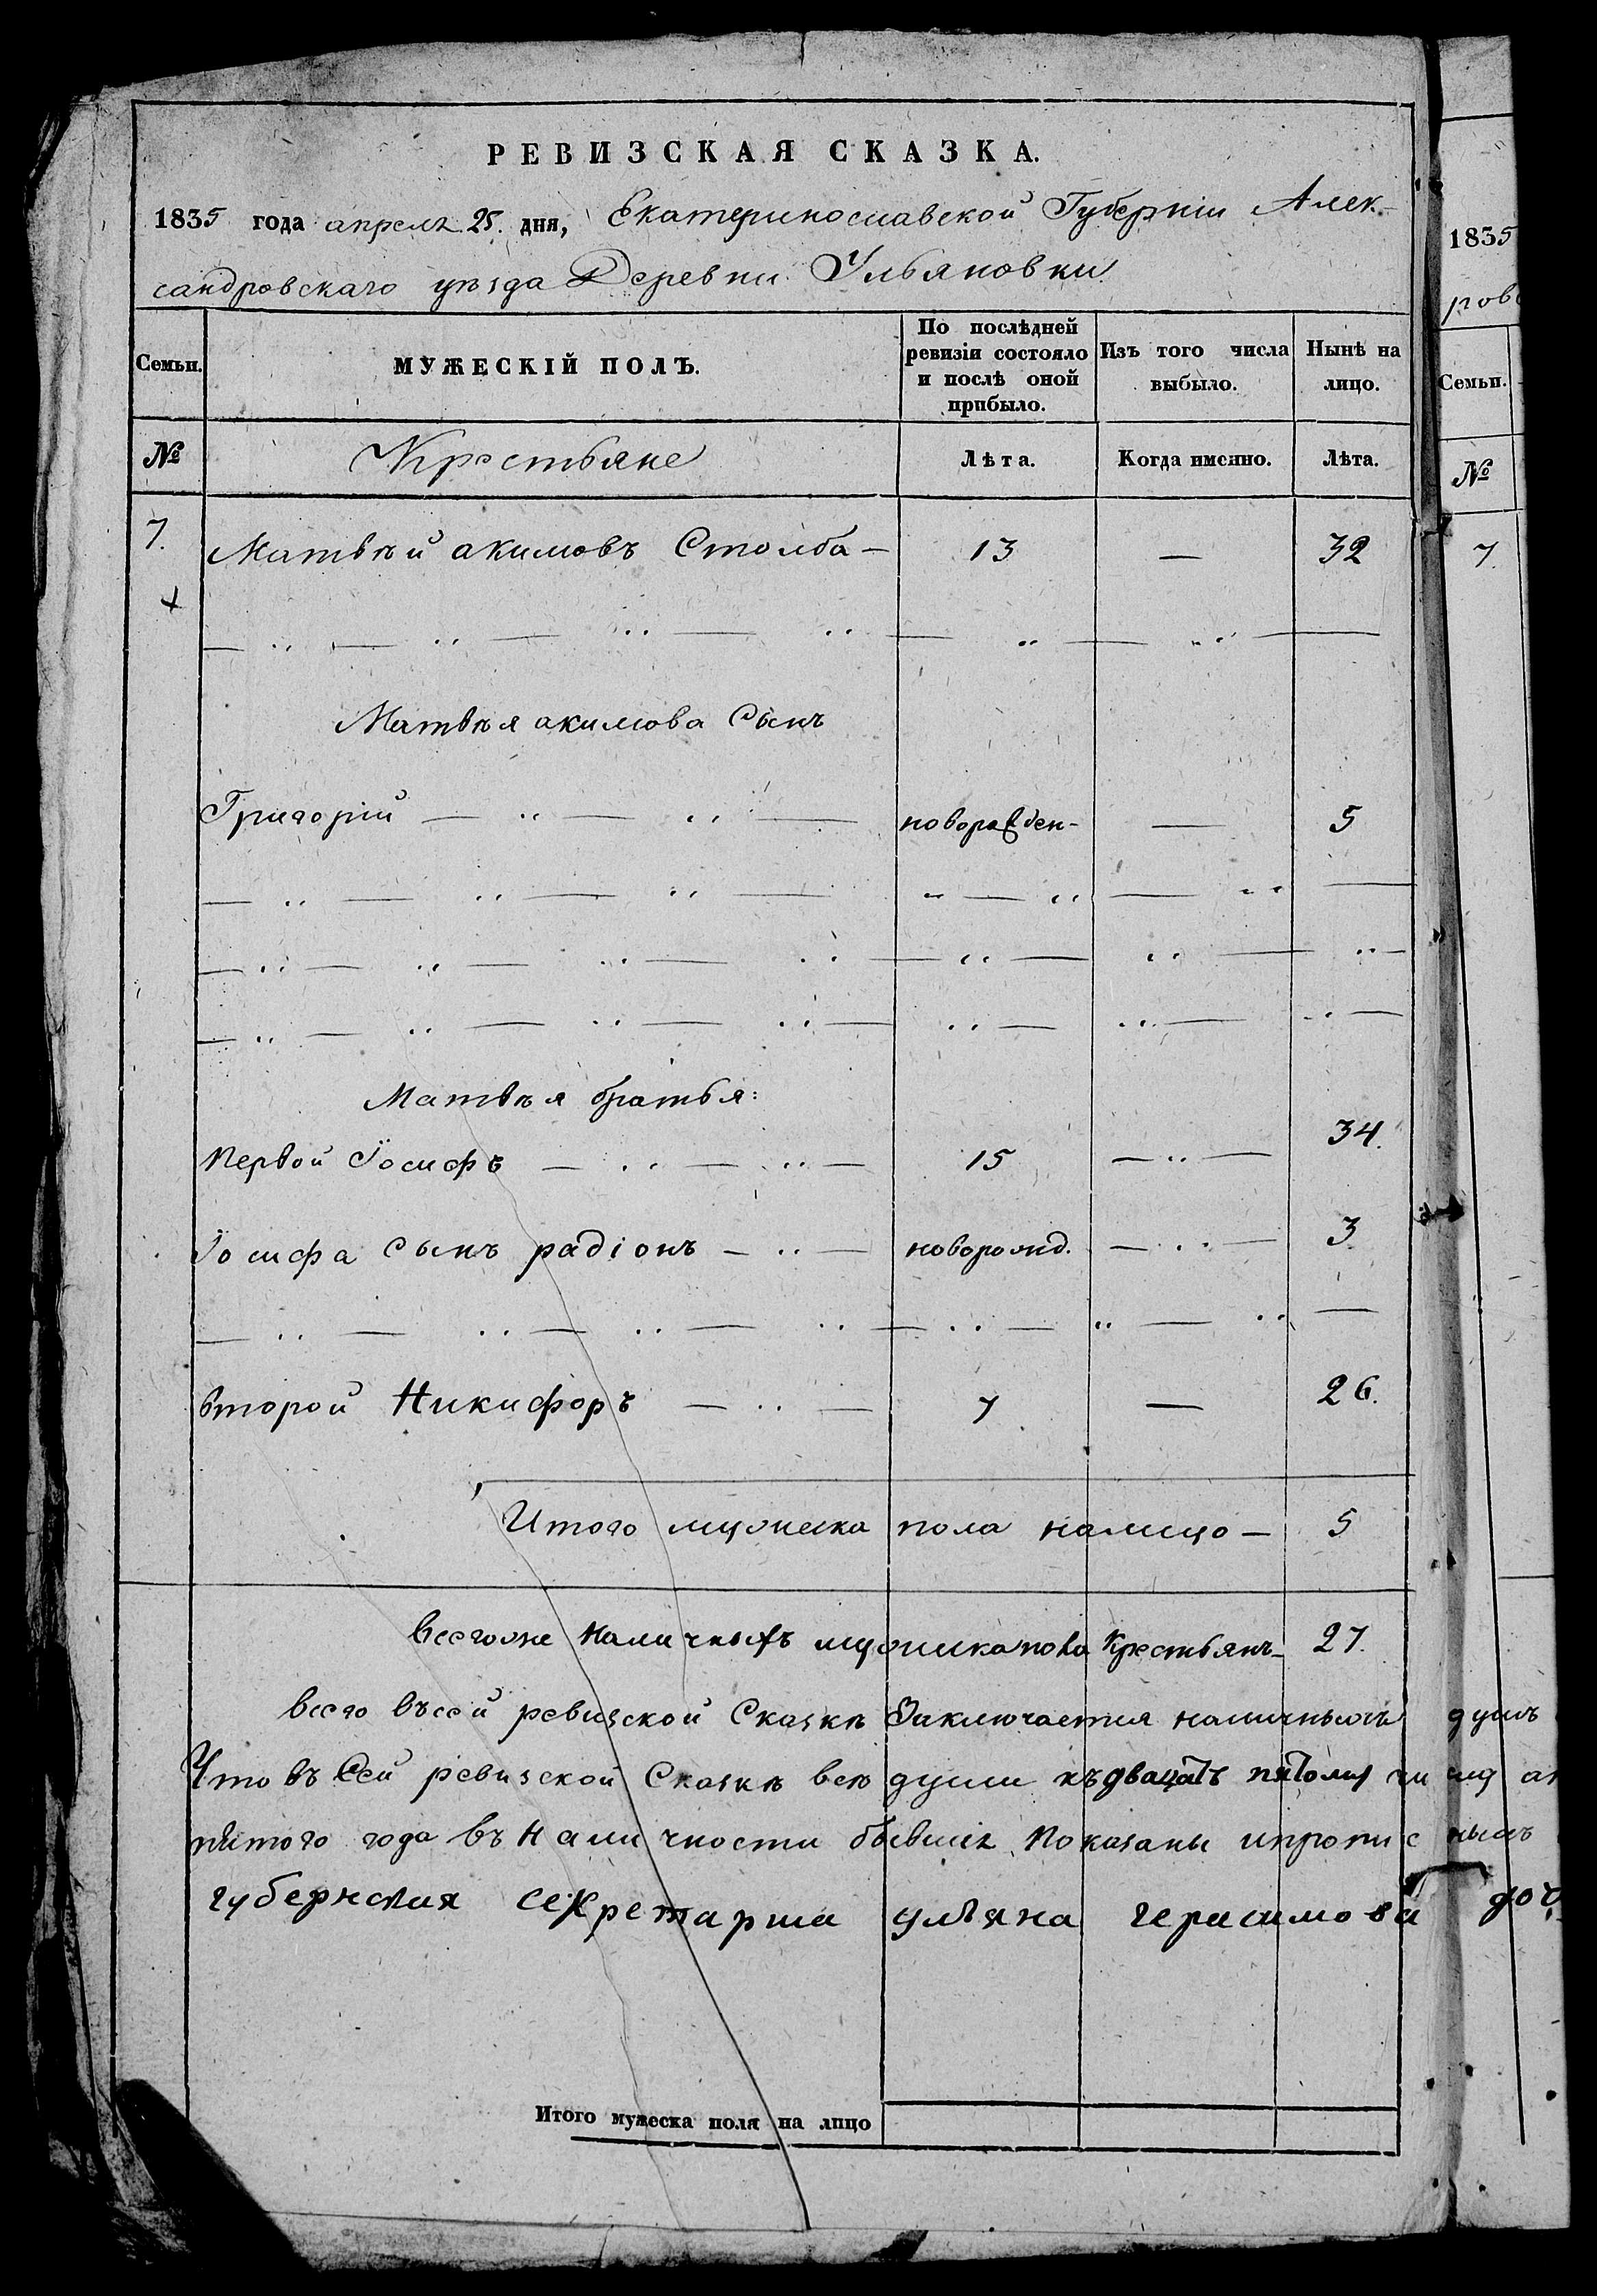 РЕВИЗСКАЯ СКАЗКА.
1835 года апреля 25. дня, Екатеринославской Губерніи Алек-
сандровскаго уѣзда Деревни Ульяновки
Семьи. МУЖЕСКІЙ ПОЛЪ. По послѣдней ревизіи состояло и послѣ оной прибыло. Изъ того числа выбыло. Нынѣ на лицо.
№ Крестьяне Лѣта. Когда имянно. Лѣта.
7. Матвѣй акимовъ Столба — 13 — 32
Матвѣя акимова Сынъ
Григорій — новоражден- — 5
Матвѣя братья:
Первой Іосифъ — 15 — 34.
Іосифа Сынъ радіонъ — новорожд. — 3
второй Никифоръ — 7 — 26.
Итого мужеска пола налицо — 5
всегоже Наличныхъ мужеска пола Крестьянъ — 27.
Всего въсей ревизской Сказкѣ Заключается наличныхъ душъ
Что въ Сей ревизской Сказкѣ всѣ души къ двацать пятому чи
пятого года въ Наличности бывшіе показаны и пропис ныхъ
губернская секретарша ульяна герасимова доч
Итого мужеска пола на лицо
1835
рово
Семьи.
№
7.